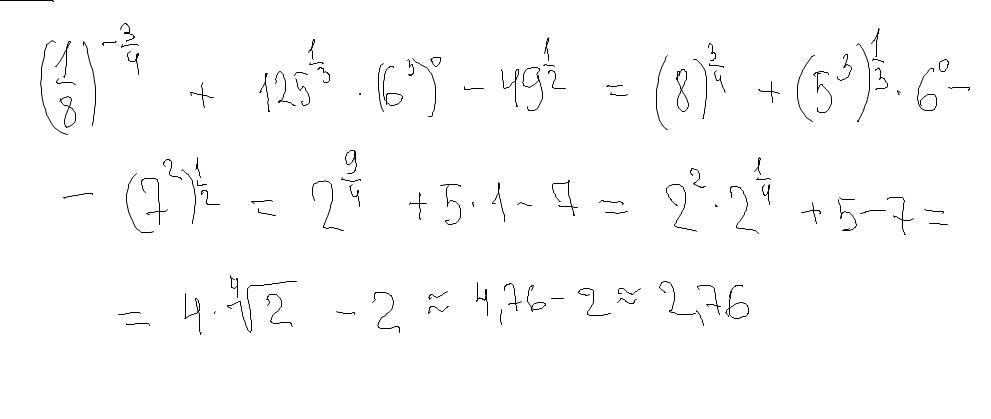 (1/8)^(-3/4) + 125^(1/3) · (6^3)^0 - 49^(1/2) = (8)^(3/4) + (5^3)^(1/3) · 6^0 -
- (7^2)^(1/2) = 2^(9/4) + 5 · 1 - 7 = 2^2 · 2^(1/4) + 5 - 7 =
= 4 · ∜2 - 2 ≈ 4,76 - 2 ≈ 2,76